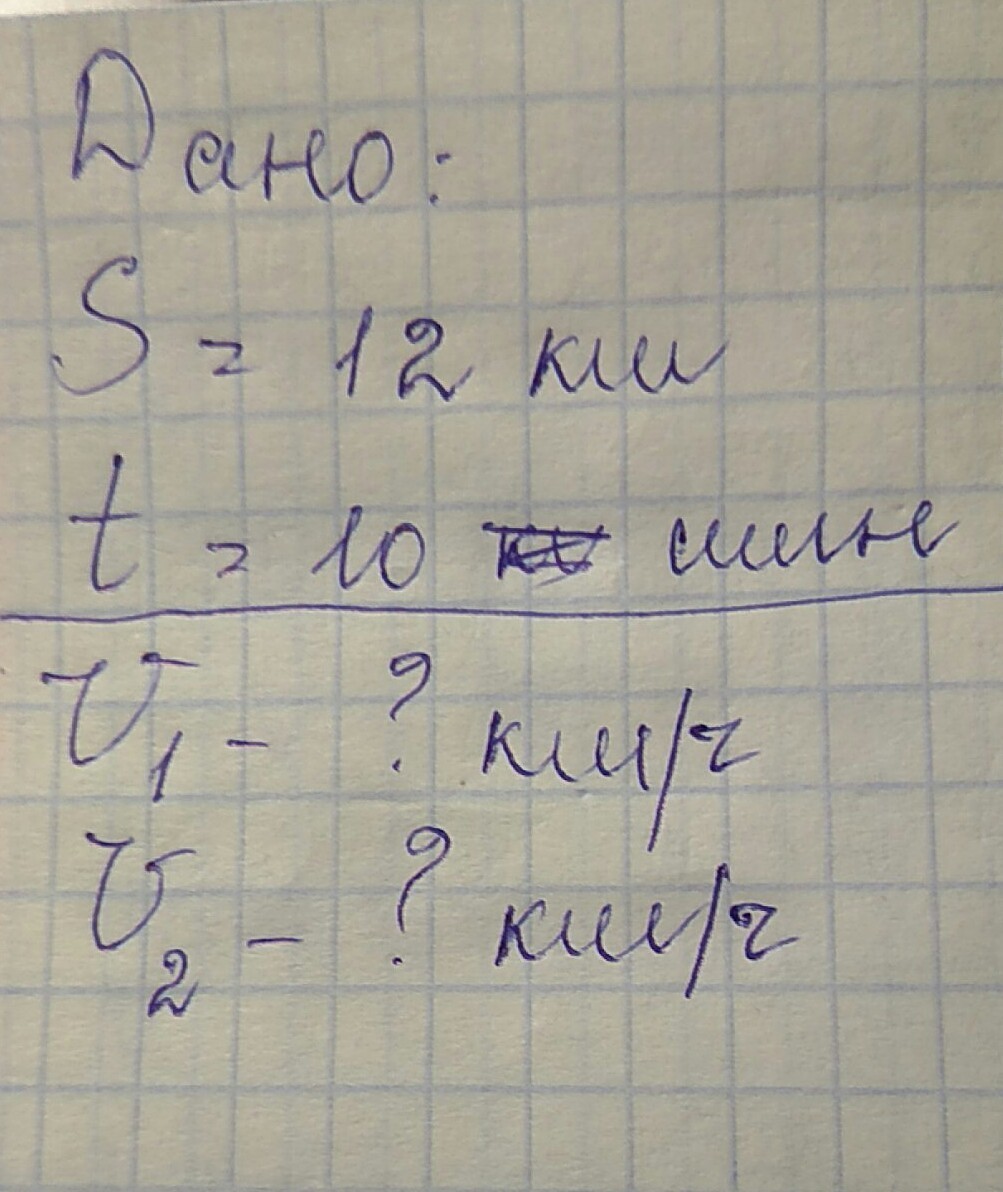 Дано:
S = 12 км
t = 10 мин
V₁ - ? км/ч
V₂ - ? км/ч